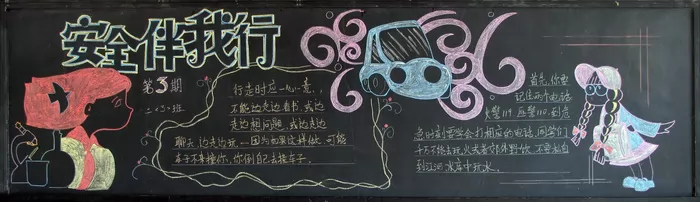 安全伴我行
第3期
二<3>班
行走时应一心一意,
不能边走边看书,或边
走边想问题,或边走边
聊天,边走边玩……因为如果这样做,可能
车子不来撞你,你倒自己去撞车子。
首先,你要
记住两个电话
火警119,匪警110,到危
急时刻要学会打相应的电话,同学们
千万不能去玩火或者郊外野炊,不要私自
到江河水库中玩水。